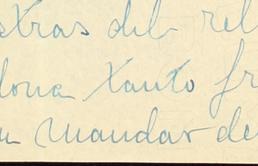 stras del rel
dona tanto fr
n mandar de